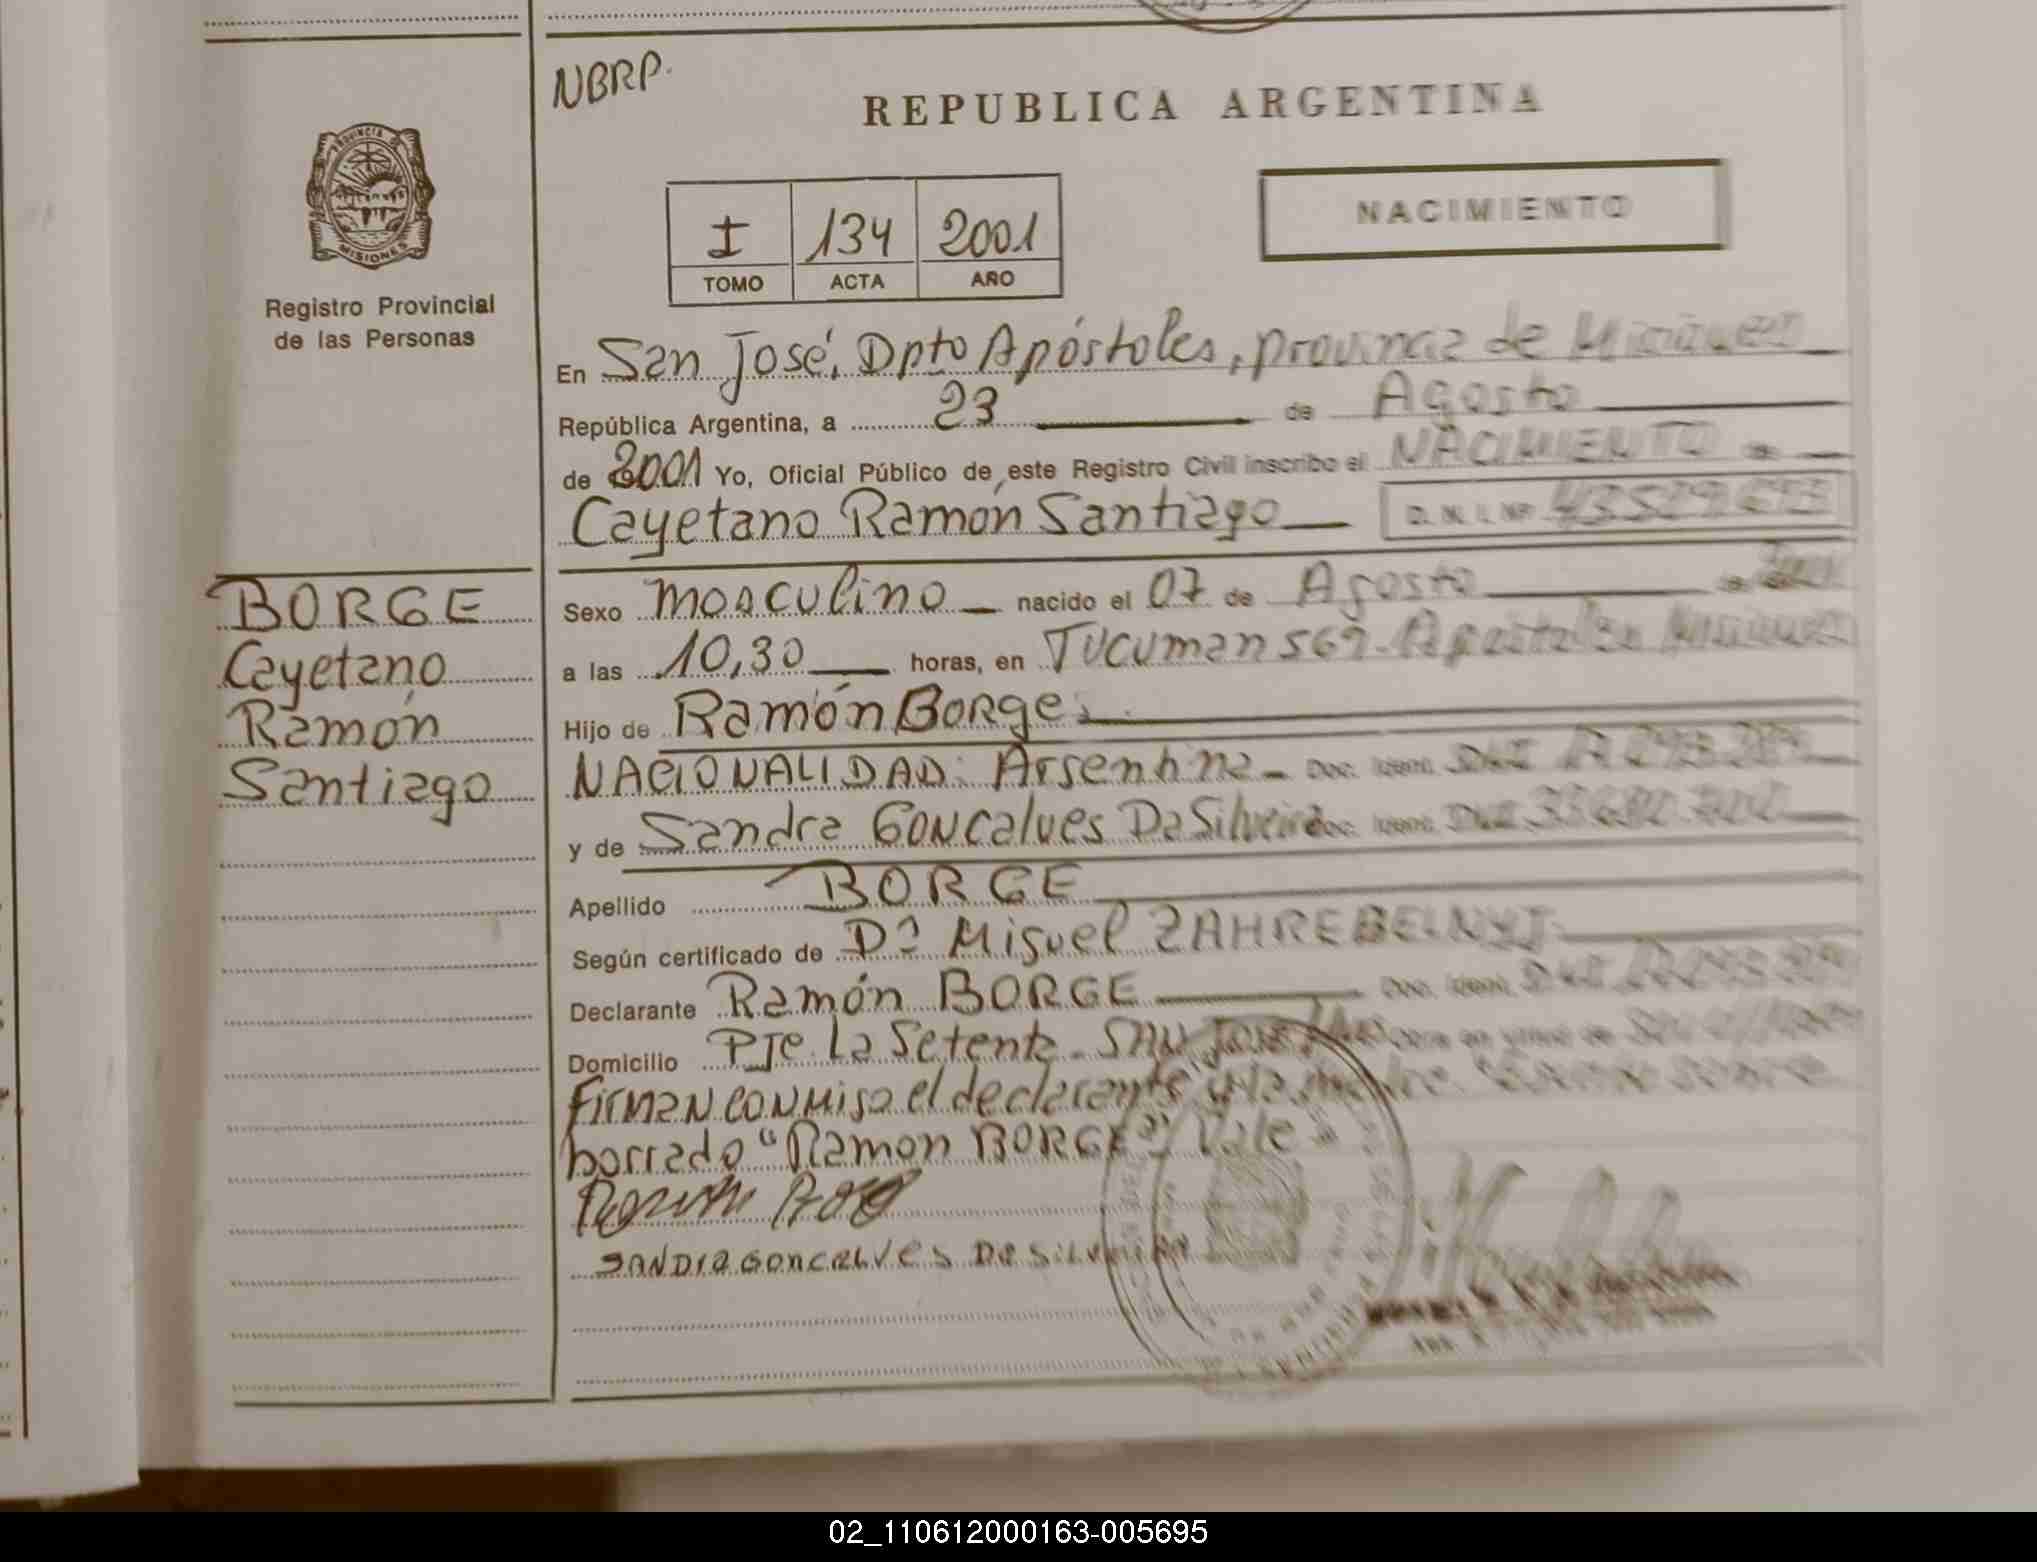 NBRP.
REPUBLICA ARGENTINA
PROVINCIA DE
MISIONES
Registro Provincial
de las Personas
I 134 2001
TOMO ACTA AÑO
NACIMIENTO
En San José, Dpto Apóstoles, provincia de Misiones
República Argentina, a 23 de Agosto
de 2001 Yo, Oficial Público de este Registro Civil inscribo el NACIMIENTO de
Cayetano Ramón Santiago D.N.I. Nº
BORGE
Cayetano
Ramón
Santiago
Sexo masculino nacido el 07 de Agosto de 2001
a las 10,30 horas, en Tucuman 569. Apostoles Misiones
Hijo de Ramón Borge
NACIONALIDAD: Argentina Doc. Ident. DNI
y de Sandra Goncalves Da Silveira Doc. Ident. DNI
Apellido BORGE
Según certificado de Dº Miguel ZAHREBELNYJ
Declarante Ramón BORGE Doc. Ident. DNI
Domicilio Pje. La Setenta - SAN JOSE
Firman conmigo el declarante y la madre. sobre
borrado "Ramon BORGE" Vale
SANDRA GONCALVES DA SILVEIRA
02_110612000163-005695